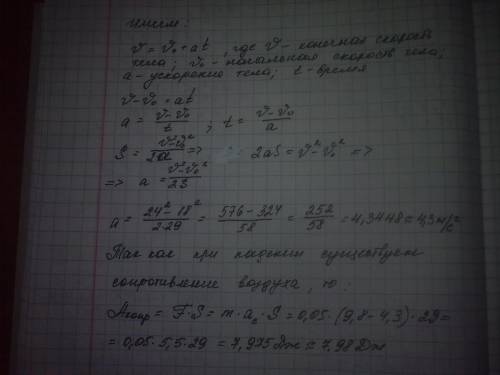 имеем:
υ = υ₀ + at, где υ - конечная скорость
тела; υ₀ - начальная скорость тела;
a - ускорение тела; t - время
υ - υ₀ = at
a = (υ - υ₀)/t ; t = (υ - υ₀)/a
S = (υ² - υ₀²)/2a => 2aS = υ² - υ₀² =>
=> a = (υ² - υ₀²)/2S
a = (24² - 18²)/2·29 = (576 - 324)/58 = 252/58 = 4,3448 ≈ 4,3 м/с²
Так как при падении существует
сопротивление воздуха, то:
Aсопр = F·S = m·a_c·S = 0,05·(9,8 - 4,3)·29 =
= 0,05·5,5·29 = 7,975 Дж ≈ 7,98 Дж